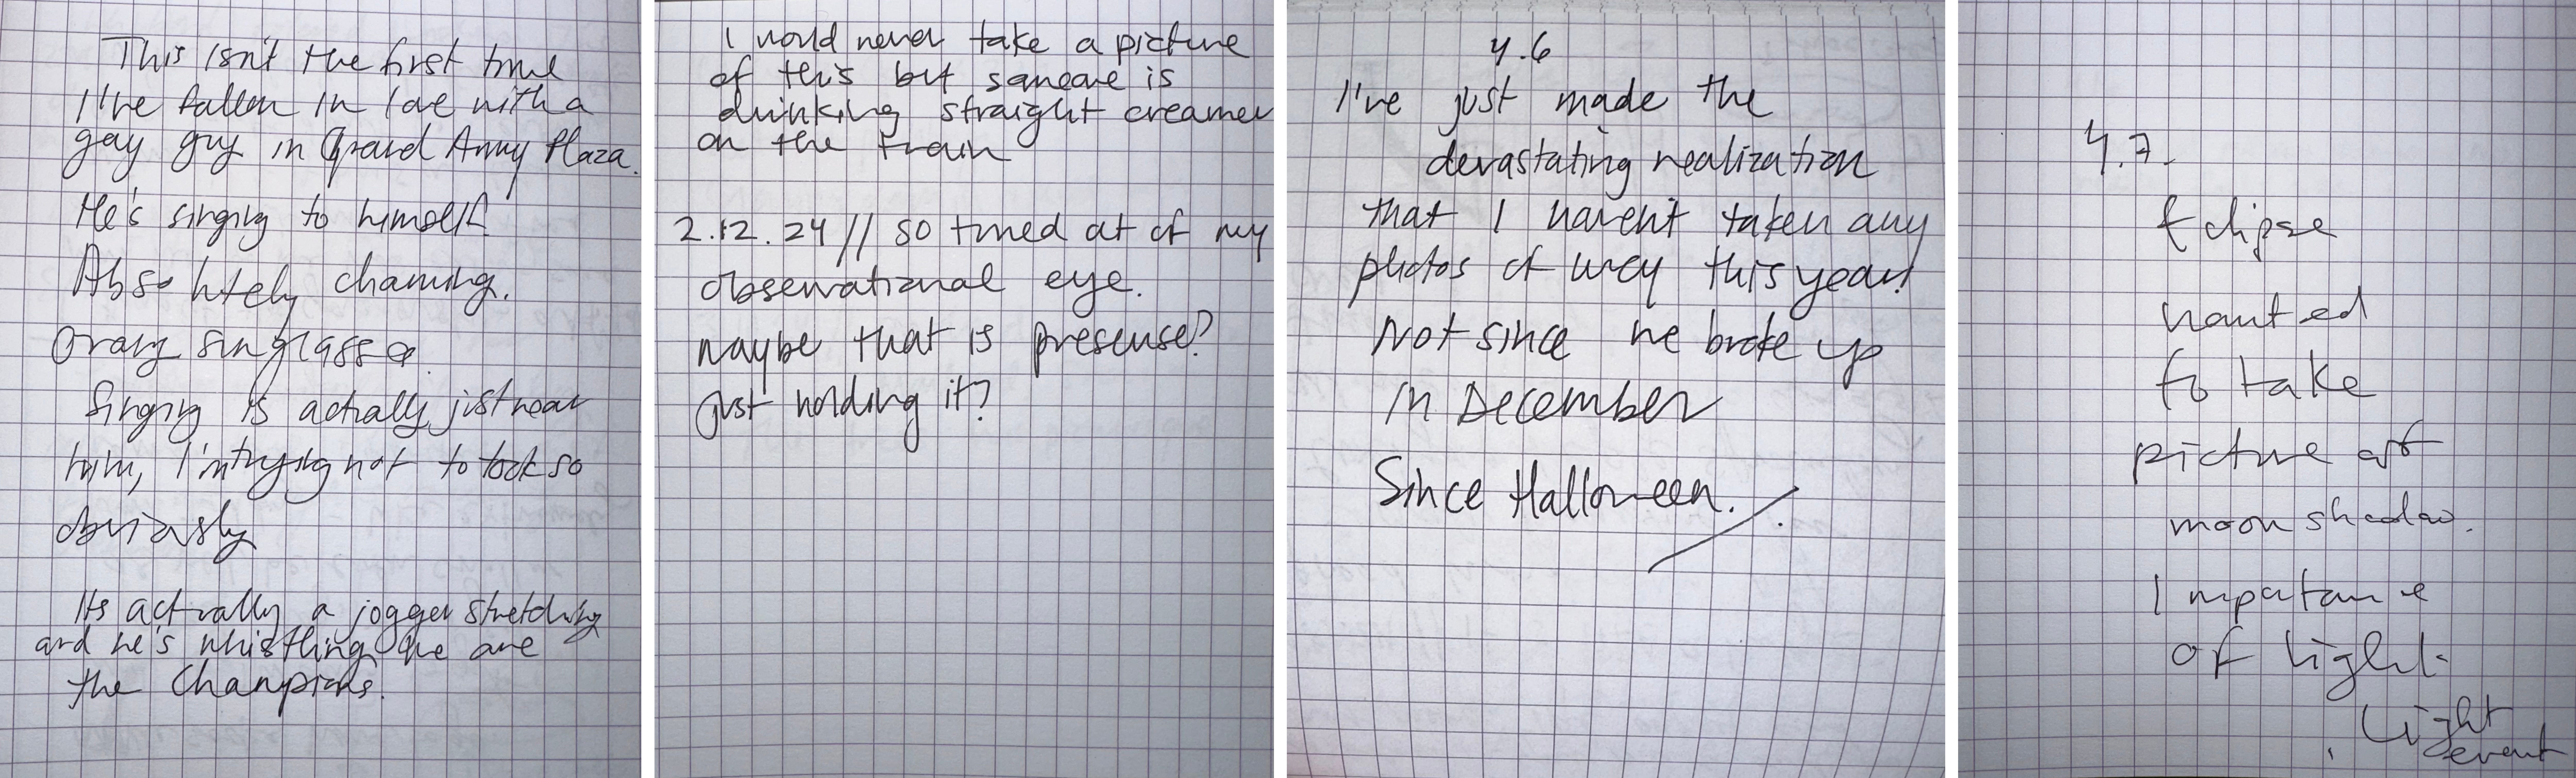 This isn't the first time
I've fallen in love with a
gay guy in Grand Army Plaza.
He's singing to himself.
Absolutely charming.
Orange sunglasses.
Singing is actually just near
him, I'm trying not to look so
obviously
Its actually a jogger stretching
and he's whistling We are
the Champions.
I would never take a picture
of this but someone is
drinking straight creamer
on the train
2.12.24 // so tuned out of my
observational eye.
maybe that is presense?
just holding it?
4.6
I've just made the
devastating realization
that I haven't taken any
photos of Lucy this year!
Not since we broke up
in December
Since Halloween.
4.7.
Eclipse
wanted
to take
picture of
moon shadow.
Importance
of light.
Light
event